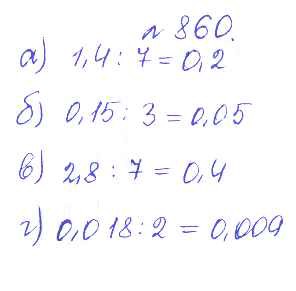 № 860.
а) 1,4 : 7 = 0,2
б) 0,15 : 3 = 0,05
в) 2,8 : 7 = 0,4
г) 0,018 : 2 = 0,009